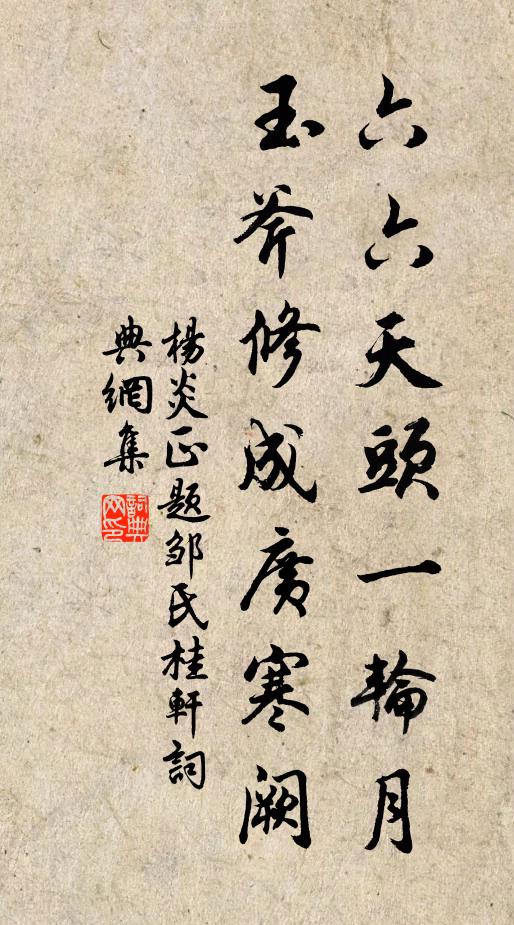 六六天頭一輪月
玉斧修成廣寒闕
楊炎正題鄒氏桂軒詞
典網集
詞典網印